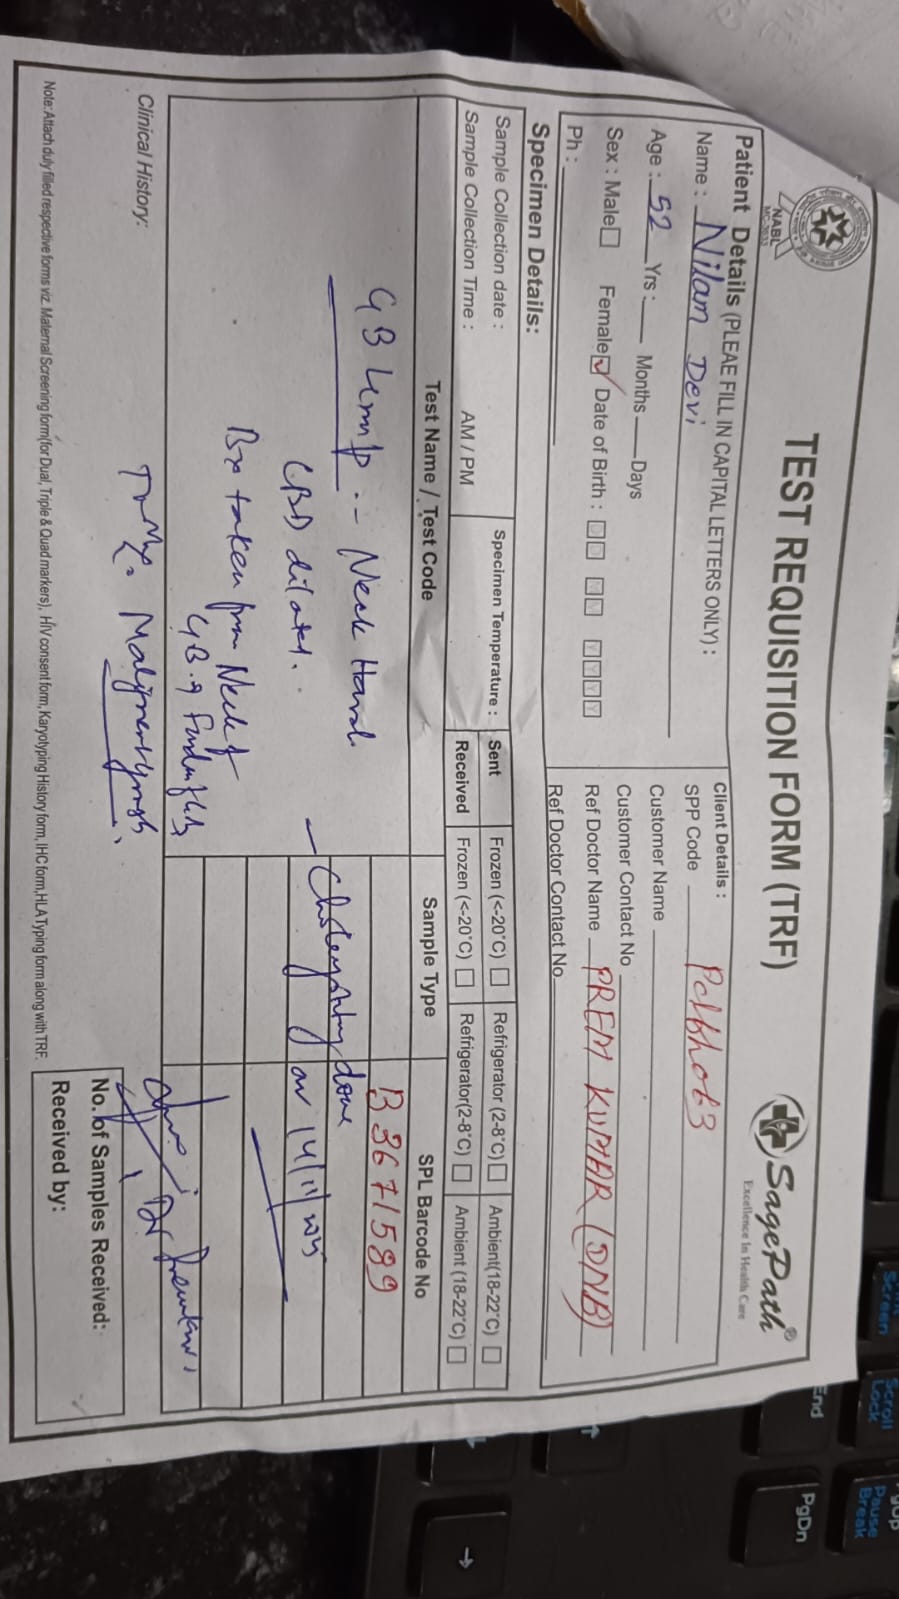 NABL
TEST REQUISITION FORM (TRF)
SagePath®
Excellence In Health Care
Patient Details (PLEAE FILL IN CAPITAL LETTERS ONLY) :
Name : Nilam Devi
Age : 52 Yrs : Months Days
Sex : Male Female Date of Birth : Y Y Y Y
Ph :
Client Details :
SPP Code
Customer Name
Customer Contact No
Ref Doctor Name PREM KUMAR (DNB)
Ref Doctor Contact No
Specimen Details:
Sample Collection date :
Sample Collection Time : AM / PM
Specimen Temperature :
Sent Frozen (<-20°C) Refrigerator (2-8°C) Ambient(18-22°C)
Received Frozen (<-20°C) Refrigerator(2-8°C) Ambient (18-22°C)
Test Name / Test Code Sample Type SPL Barcode No
B3671589
GB Lump - Neck
CBD dilated.
Bx taken from Neck of
GB
done
on 14/11/
Clinical History:
No. of Samples Received:
Received by:
Note:Attach duly filled respective forms viz. Maternal Screening form(for Dual, Triple & Quad markers), HIV consent form, Karyotyping History form, IHC form,HLA Typing form along with TRF.
End
PgDn
Screen
Scroll
Lock
Pause
Break